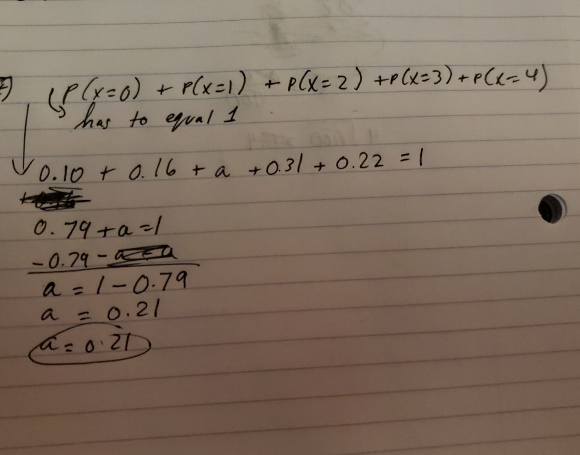 P(x=0) + P(x=1) + P(x=2) + P(x=3) + P(x=4)
has to equal 1
0.10 + 0.16 + a + 0.31 + 0.22 = 1
0.79 + a = 1
-0.79 -
a = 1 - 0.79
a = 0.21
a = 0.21